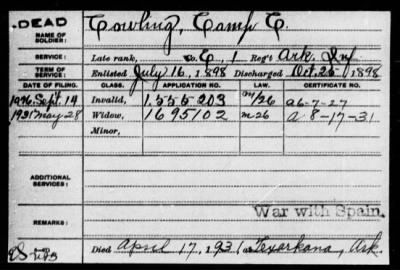 DEAD
NAME OF SOLDIER: Cowling, Camp C.
SERVICE: Late rank, Co. C, 1 Reg't Ark. Inf
TERM OF SERVICE: Enlisted July 16, 1898 Discharged Oct. 25, 1898
DATE OF FILING. CLASS. APPLICATION NO. LAW. CERTIFICATE NO.
1926 Sept. 14 Invalid, 1,555,203 m/26 a 6-7-27
1931 May 28 Widow, 1695102 m26 a 8-17-31
Minor,
ADDITIONAL SERVICES:
War with Spain.
REMARKS:
Died April 17, 1931 at Texarkana, Ark.